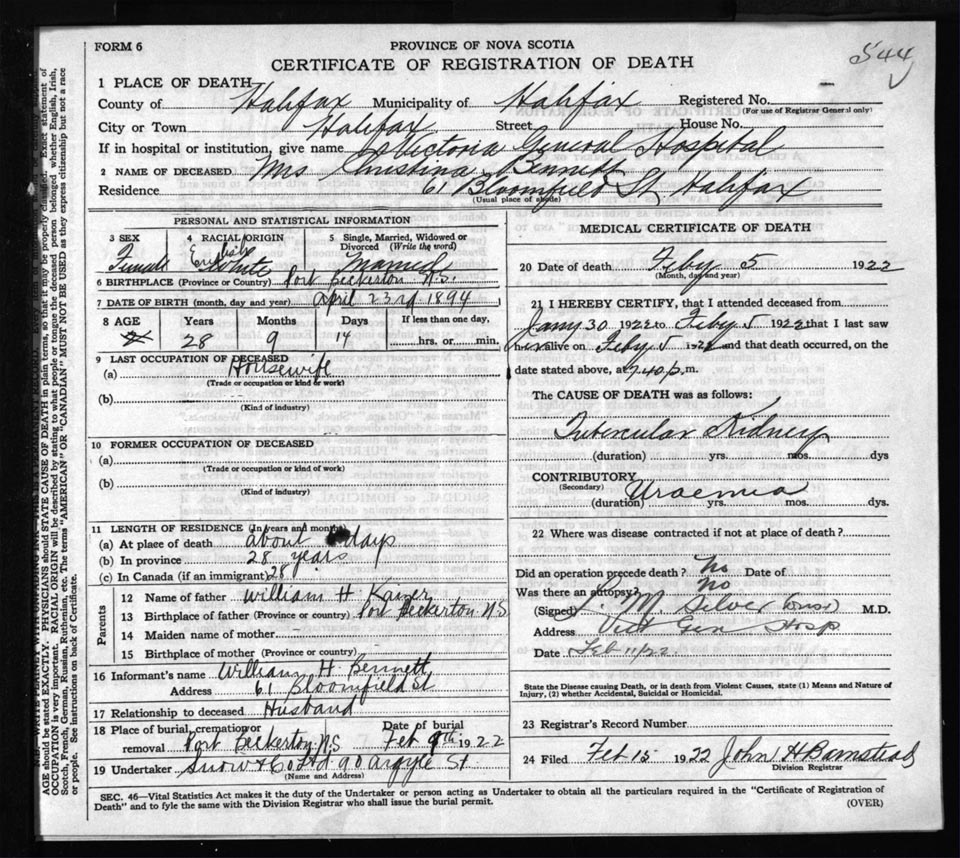 FORM 6
PROVINCE OF NOVA SCOTIA
544
CERTIFICATE OF REGISTRATION OF DEATH
1 PLACE OF DEATH
County of Halifax Municipality of Halifax Registered No.
(For use of Registrar General only)
City or Town Halifax Street House No.
If in hospital or institution, give name Victoria General Hospital
2 NAME OF DECEASED Mrs Christina Bennett
Residence 61 Bloomfield St. Halifax
(Usual place of abode)
PERSONAL AND STATISTICAL INFORMATION
3 SEX Female
4 RACIAL ORIGIN English White
5 Single, Married, Widowed or Divorced (Write the word) Married
6 BIRTHPLACE (Province or Country) Port Beckerton N.S.
7 DATE OF BIRTH (month, day and year) April 23rd 1894
8 AGE Years 28 Months 9 Days 14 If less than one day, hrs. or min.
9 LAST OCCUPATION OF DECEASED
(a) Housewife
(Trade or occupation or kind of work)
(b)
(Kind of industry)
10 FORMER OCCUPATION OF DECEASED
(a)
(Trade or occupation or kind of work)
(b)
(Kind of industry)
11 LENGTH OF RESIDENCE (In years and months)
(a) At place of death about days
(b) In province 28 years
(c) In Canada (if an immigrant) 28
Parents
12 Name of father William H Kaizer
13 Birthplace of father (Province or country) Port Beckerton NS
14 Maiden name of mother
15 Birthplace of mother (Province or country)
16 Informant's name William H. Bennett
Address 61 Bloomfield St
17 Relationship to deceased Husband
18 Place of burial, cremation or removal Port Beckerton N.S Date of burial Feb 9th 1922
19 Undertaker Snow & Co Ltd 90 Argyle St.
(Name and Address)
MEDICAL CERTIFICATE OF DEATH
20 Date of death Feby 5 1922
(Month, day and year)
21 I HEREBY CERTIFY, that I attended deceased from
Jany 30 1922 to Feby 5 1922 that I last saw
her alive on Feby 5 192 and that death occurred, on the
date stated above, at 7.40 p. m.
The CAUSE OF DEATH was as follows:
Tubercular Kidney
(duration) yrs. mos. dys
CONTRIBUTORY
(Secondary) Uraemia
(duration) yrs. mos. dys.
22 Where was disease contracted if not at place of death?
Did an operation precede death? No Date of
Was there an autopsy? No
(Signed) M. Silver M.D.
Address Vict Gen Hosp
Date Feb 11/22.
State the Disease causing Death, or in death from Violent Causes, state (1) Means and Nature of
Injury, (2) whether Accidental, Suicidal or Homicidal.
23 Registrar's Record Number
24 Filed Feb 15 1922 John H Barnstead
Division Registrar
SEC. 46—Vital Statistics Act makes it the duty of the Undertaker or person acting as Undertaker to obtain all the particulars required in the "Certificate of Registration of
Death" and to fyle the same with the Division Registrar who shall issue the burial permit.
(OVER)
AGE should be stated EXACTLY. PHYSICIANS should STATE CAUSE OF DEATH in plain terms, so that it may be properly classified. Exact statement of
OCCUPATION is very important. RACIAL ORIGIN will be described by stating to what people or tongue the deceased person belonged whether English, Irish,
Scotch, French, German, Russian, Ruthenian, etc. The terms "AMERICAN" OR "CANADIAN" MUST NOT BE USED as they express citizenship but not a race
or people. See instructions on back of Certificate.